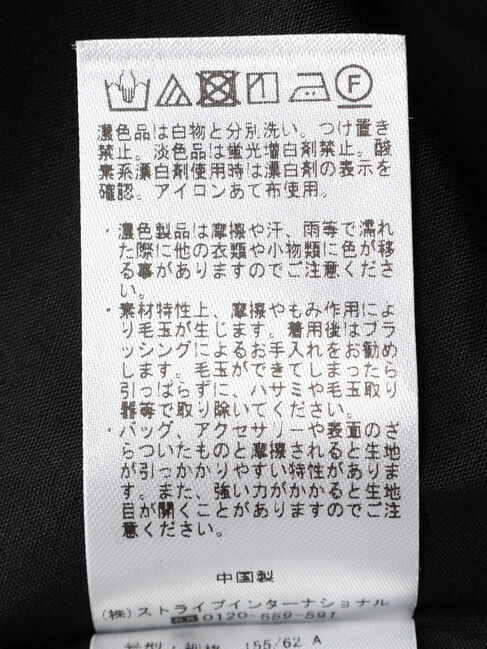 F
濃色品は白物と分別洗い。つけ置き
禁止。淡色品は蛍光増白剤禁止。酸
素系漂白剤使用時は漂白剤の表示を
確認。アイロンあて布使用。
・濃色製品は摩擦や汗、雨等で濡れ
た際に他の衣類や小物類に色が移
る事がありますのでご注意くださ
い。
・素材特性上、摩擦やもみ作用によ
り毛玉が生じます。着用後はブラ
ッシングによるお手入れをお勧め
します。毛玉ができてしまったら
引っぱらずに、ハサミや毛玉取り
器等で取り除いてください。
・バッグ、アクセサリーや表面のざ
らついたものと摩擦されると生地
が引っかかりやすい特性がありま
す。また、強い力がかかると生地
目が開くことがありますのでご注
意ください。
中国製
(株)ストライプインターナショナル
0120-659-591
155/62 A